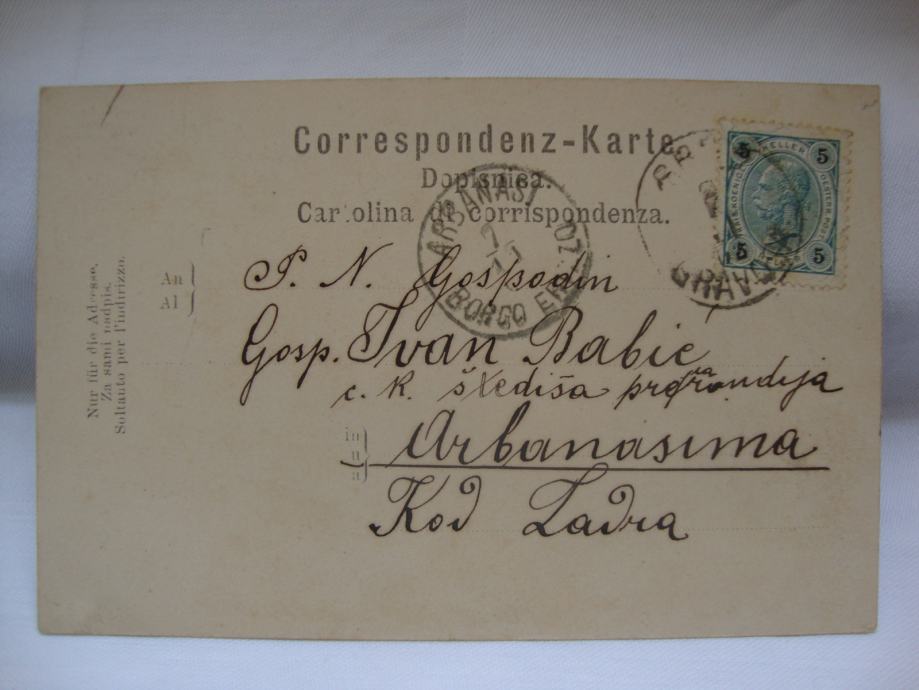 Correspondenz-Karte
Dopisnica.
Cartolina di corrispondenza.
5 HELLER 5
5 5
GRAVOSA
ARBANASI
7
BORGO ER
Nur für die Adresse.
Za sami nadpis.
Soltanto per l'indirizzo.
An
Al
P. N. Gospodin
Gosp. Ivan Babić
c. k.
in
u
a
Arbanasima
Kod Zadra